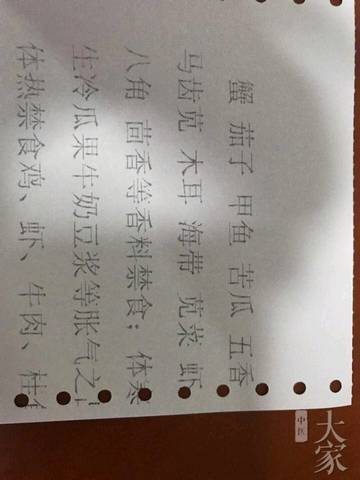 蟹 茄子 甲鱼 苦瓜 五香
马齿苋 木耳 海带 苋菜 虾
八角 茴香等香料禁食；体寒
生冷瓜果牛奶豆浆等胀气之
体热禁食鸡、虾、牛肉、桂
中医
大家